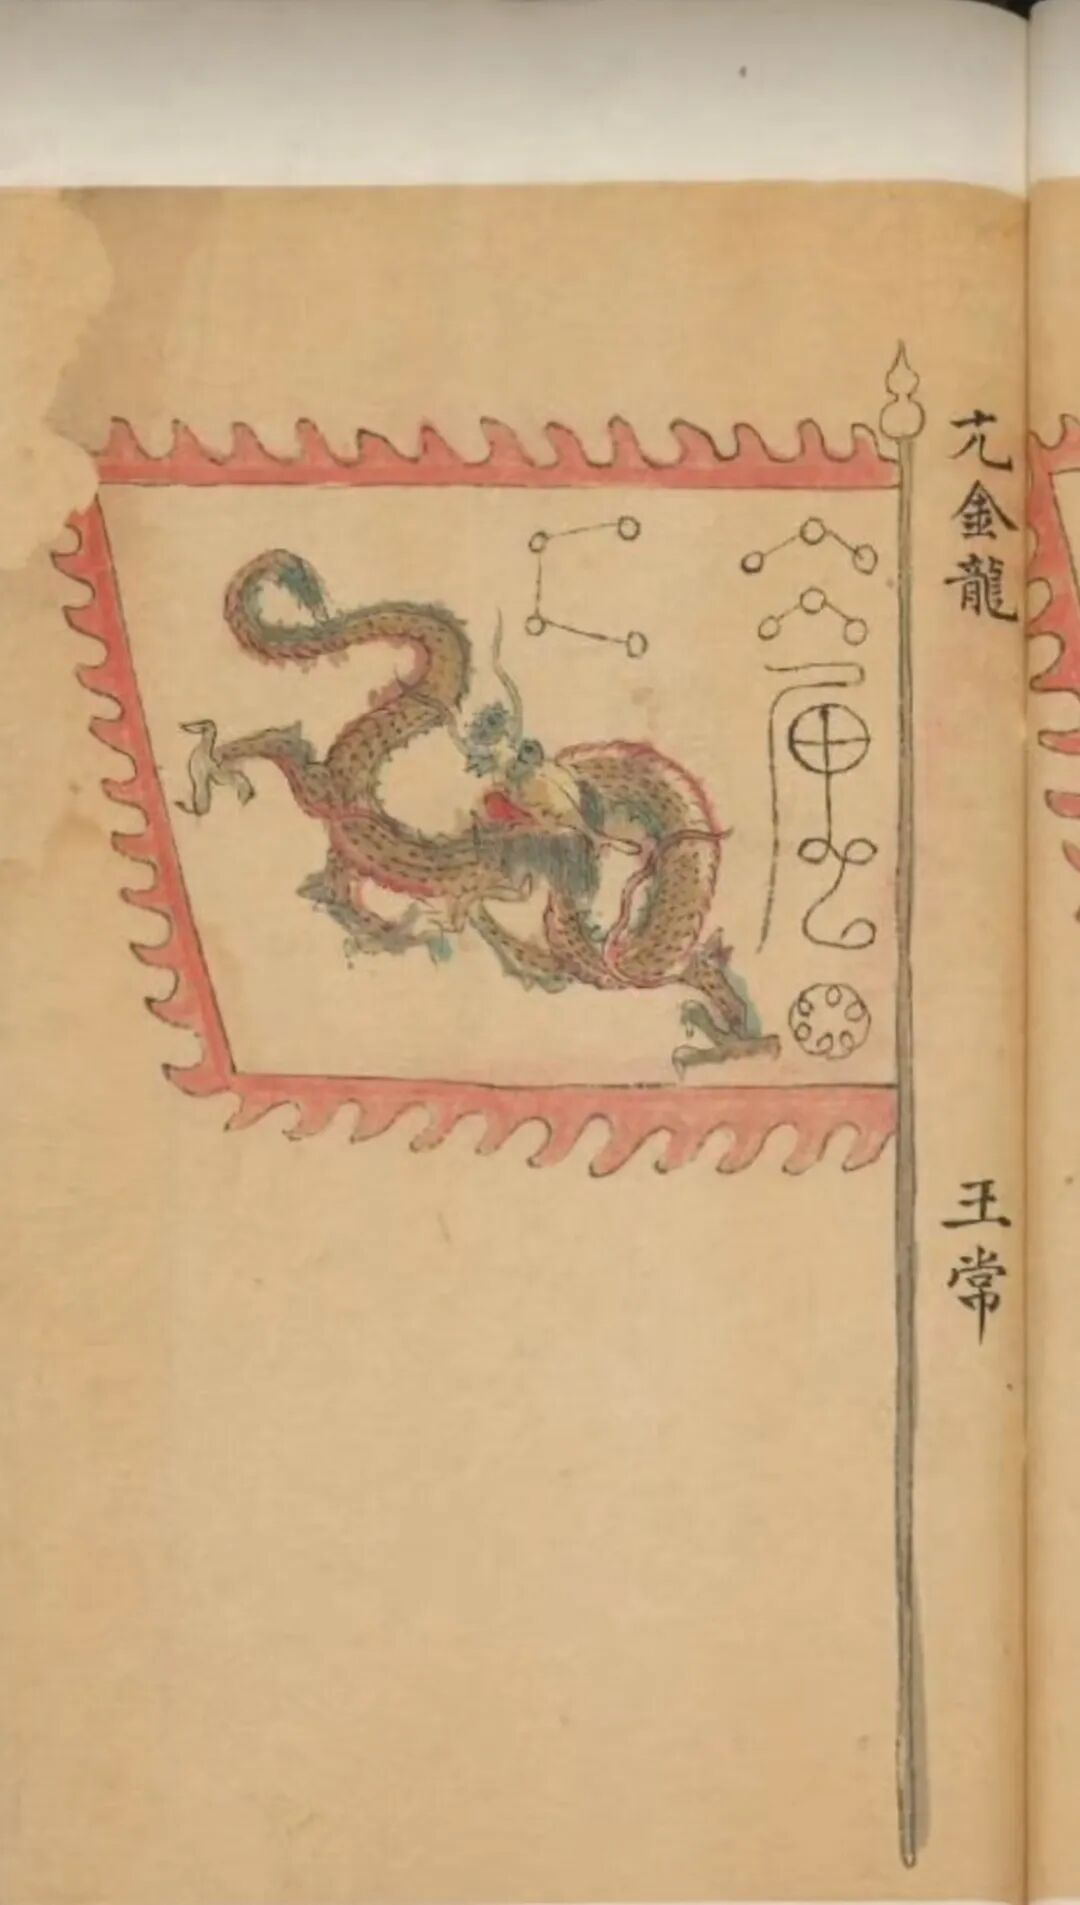 亢金龍
王常